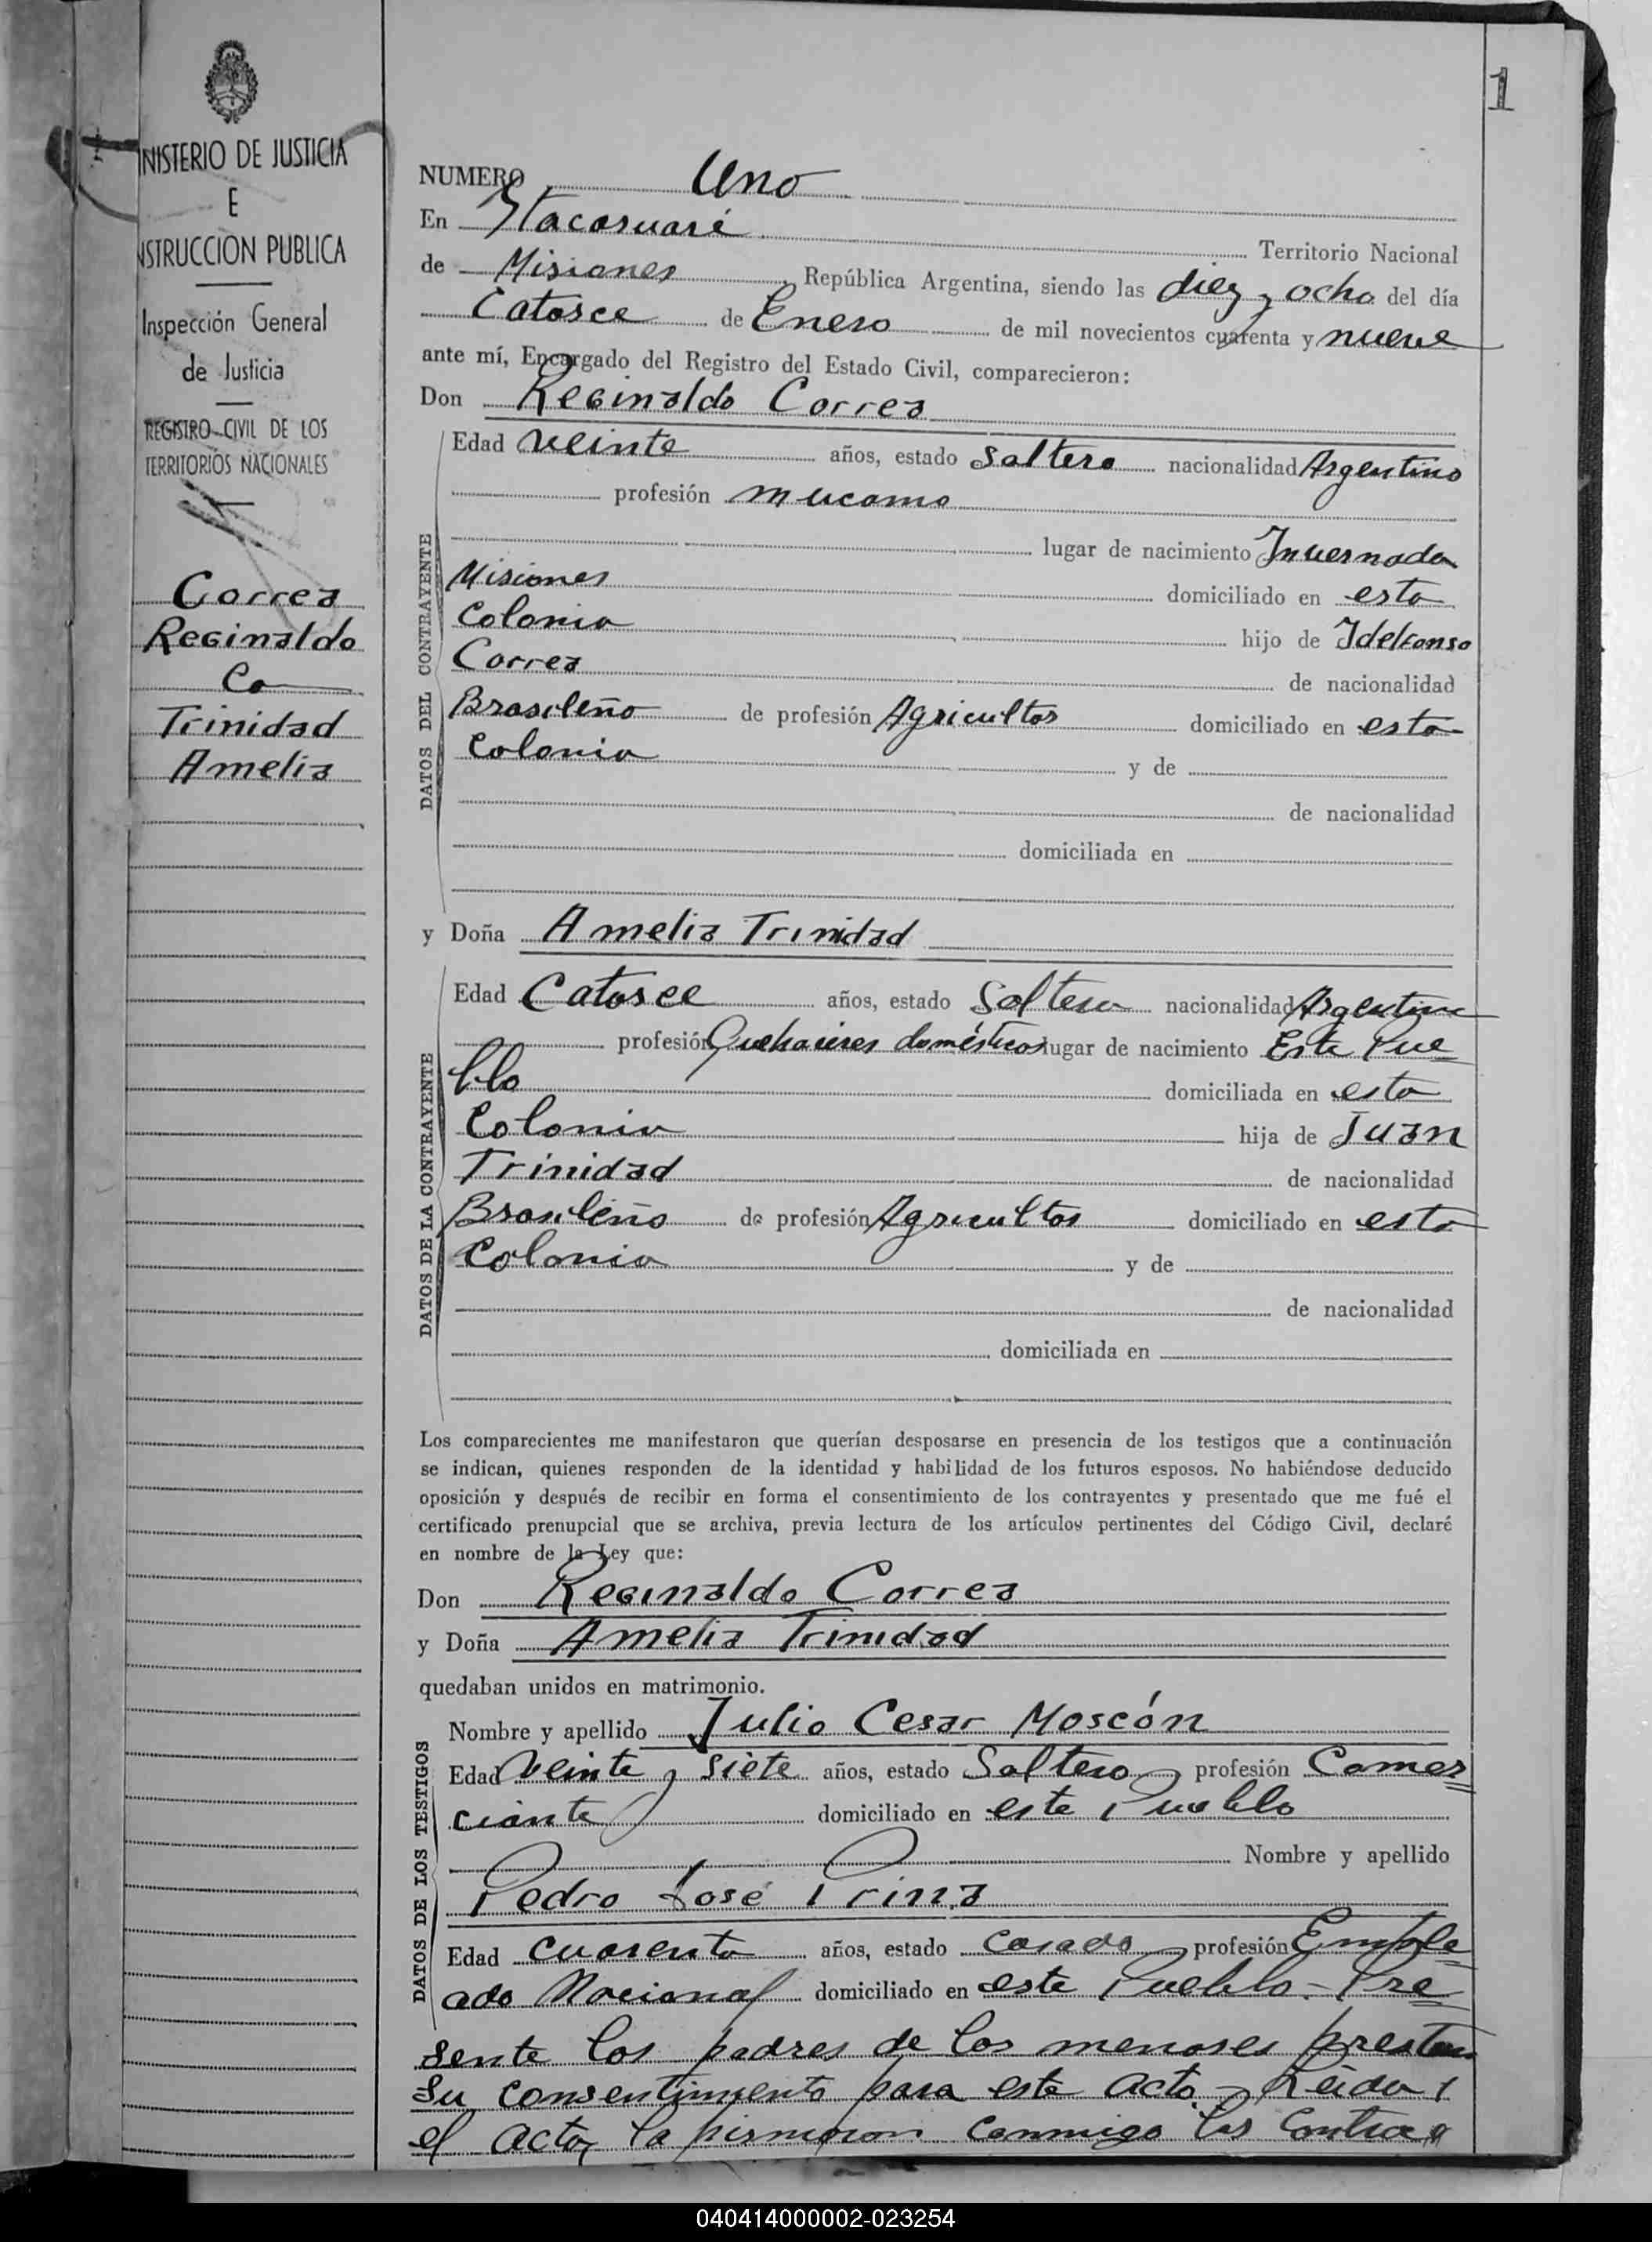 1
NISTERIO DE JUSTICIA
E
NSTRUCCION PUBLICA
Inspección General
de Justicia
REGISTRO CIVIL DE LOS
TERRITORIOS NACIONALES
Correa
Reginaldo
Co
Trinidad
Amelia
NUMERO Uno
En Itacaruaré Territorio Nacional
de Misiones, República Argentina, siendo las diez y ocho del día
Catorce de Enero de mil novecientos cuarenta y nueve
ante mí, Encargado del Registro del Estado Civil, comparecieron:
Don Reginaldo Correa
DATOS DEL CONTRAYENTE
Edad veinte años, estado soltero nacionalidad Argentino
profesión mucamo
lugar de nacimiento Invernada
Misiones domiciliado en esta
Colonia hijo de Idelfonso
Correa de nacionalidad
Brasileño de profesión Agricultor domiciliado en esta
Colonia y de
de nacionalidad
domiciliada en
y Doña Amelia Trinidad
DATOS DE LA CONTRAYENTE
Edad Catorce años, estado Soltera nacionalidad Argentina
profesión Quehaceres domésticos lugar de nacimiento Este Pue
blo domiciliada en esta
Colonia hija de Juan
Trinidad de nacionalidad
Brasileño de profesión Agricultor domiciliado en esta
Colonia y de
de nacionalidad
domiciliada en
Los comparecientes me manifestaron que querían desposarse en presencia de los testigos que a continuación
se indican, quienes responden de la identidad y habilidad de los futuros esposos. No habiéndose deducido
oposición y después de recibir en forma el consentimiento de los contrayentes y presentado que me fué el
certificado prenupcial que se archiva, previa lectura de los artículos pertinentes del Código Civil, declaré
en nombre de la Ley que:
Don Reginaldo Correa
y Doña Amelia Trinidad
quedaban unidos en matrimonio.
DATOS DE LOS TESTIGOS
Nombre y apellido Julio Cesar Moscón
Edad veinte y siete años, estado Soltero profesión Comer
ciante domiciliado en este Pueblo
Nombre y apellido
Pedro José Prina
Edad cuarenta años, estado casado profesión Emple
ado Nacional domiciliado en este Pueblo.- Pre
sente los padres de los menores prestan
su consentimiento para este acto. Leída
el acta, la firmaron conmigo los contra
040414000002-023254